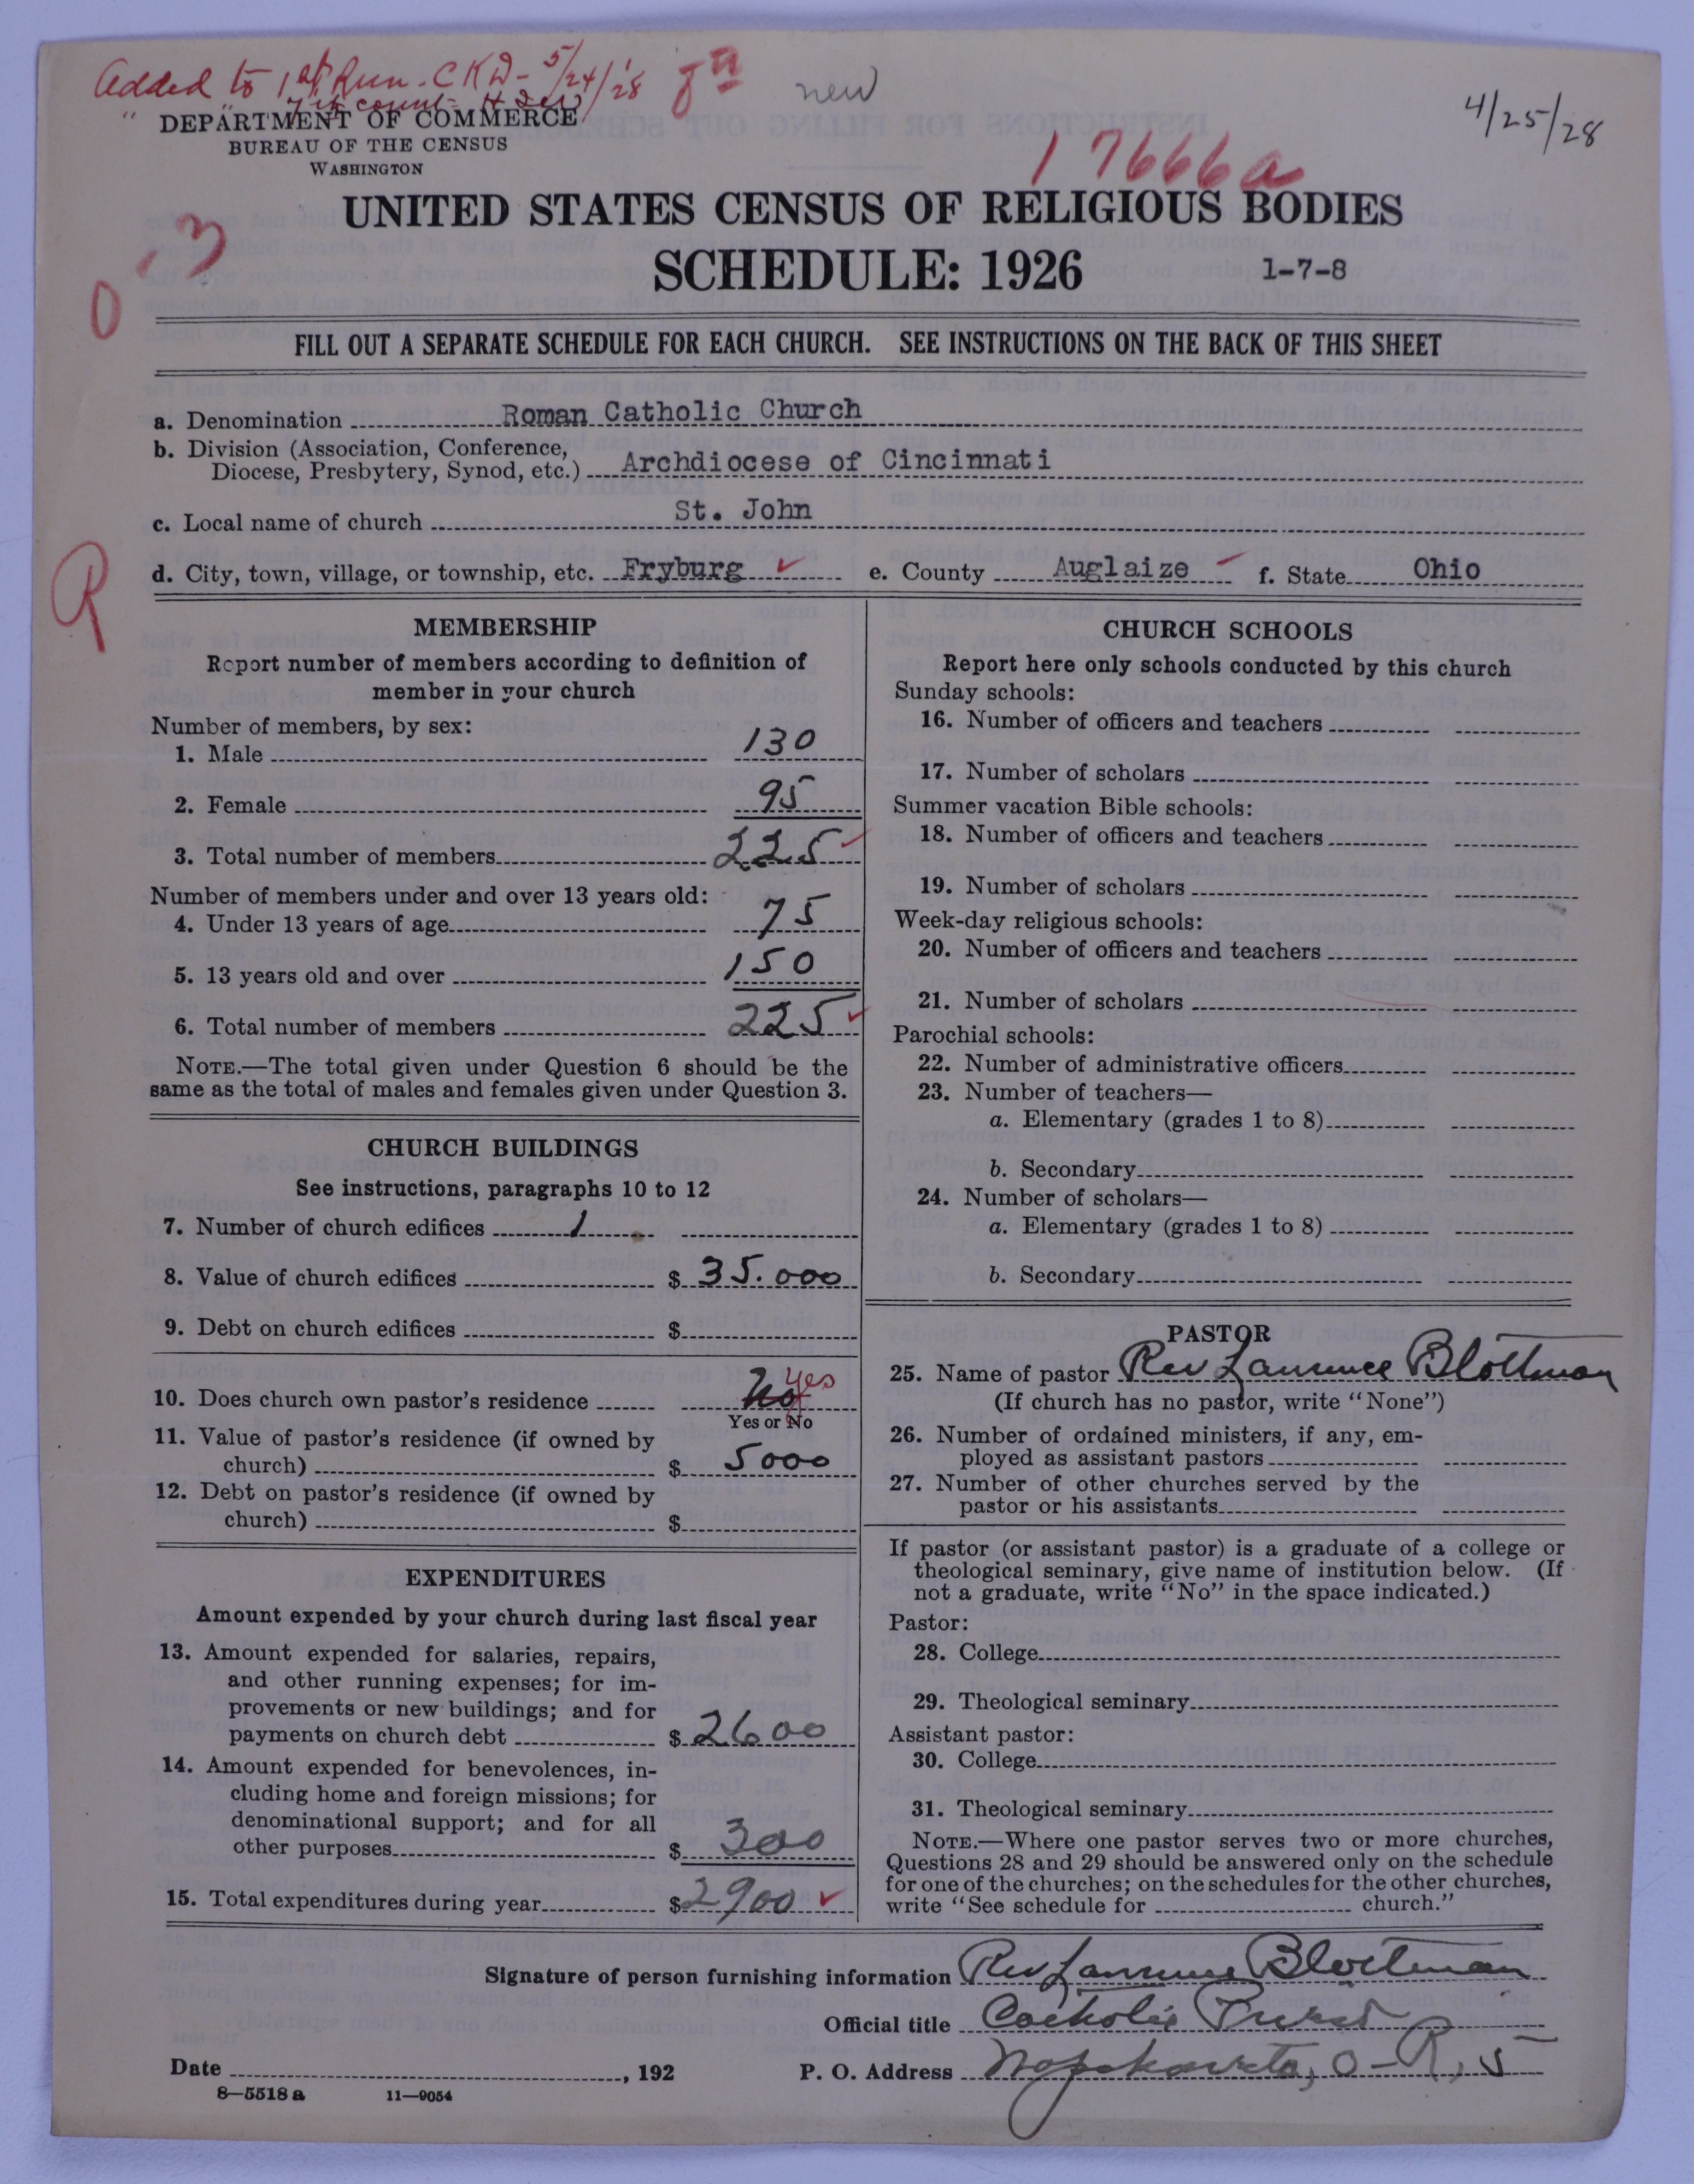 Added to 1st Run - CKW - 5/24/28 8th new
" 7th count - 4/25/28
DEPARTMENT OF COMMERCE
BUREAU OF THE CENSUS
WASHINGTON
17666a
UNITED STATES CENSUS OF RELIGIOUS BODIES
SCHEDULE: 1926 1-7-8
0 3
FILL OUT A SEPARATE SCHEDULE FOR EACH CHURCH. SEE INSTRUCTIONS ON THE BACK OF THIS SHEET
a. Denomination Roman Catholic Church
b. Division (Association, Conference,
Diocese, Presbytery, Synod, etc.) Archdiocese of Cincinnati
c. Local name of church St. John
R
d. City, town, village, or township, etc. Fryburg ✓ e. County Auglaize f. State Ohio
MEMBERSHIP
Report number of members according to definition of
member in your church
Number of members, by sex:
1. Male 130
2. Female 95
3. Total number of members 225 ✓
Number of members under and over 13 years old:
4. Under 13 years of age 75
5. 13 years old and over 150
6. Total number of members 225 ✓
NOTE.—The total given under Question 6 should be the
same as the total of males and females given under Question 3.
CHURCH BUILDINGS
See instructions, paragraphs 10 to 12
7. Number of church edifices 1
8. Value of church edifices $ 35.000
9. Debt on church edifices $
10. Does church own pastor's residence No Yes
Yes or No
11. Value of pastor's residence (if owned by
church) $ 5000
12. Debt on pastor's residence (if owned by
church) $
EXPENDITURES
Amount expended by your church during last fiscal year
13. Amount expended for salaries, repairs,
and other running expenses; for im-
provements or new buildings; and for
payments on church debt $ 2600
14. Amount expended for benevolences, in-
cluding home and foreign missions; for
denominational support; and for all
other purposes $ 300
15. Total expenditures during year $ 2900 ✓
CHURCH SCHOOLS
Report here only schools conducted by this church
Sunday schools:
16. Number of officers and teachers
17. Number of scholars
Summer vacation Bible schools:
18. Number of officers and teachers
19. Number of scholars
Week-day religious schools:
20. Number of officers and teachers
21. Number of scholars
Parochial schools:
22. Number of administrative officers
23. Number of teachers—
a. Elementary (grades 1 to 8)
b. Secondary
24. Number of scholars—
a. Elementary (grades 1 to 8)
b. Secondary
PASTOR
25. Name of pastor Rev Laurence Blottman
(If church has no pastor, write "None")
26. Number of ordained ministers, if any, em-
ployed as assistant pastors
27. Number of other churches served by the
pastor or his assistants
If pastor (or assistant pastor) is a graduate of a college or
theological seminary, give name of institution below. (If
not a graduate, write "No" in the space indicated.)
Pastor:
28. College
29. Theological seminary
Assistant pastor:
30. College
31. Theological seminary
NOTE.—Where one pastor serves two or more churches,
Questions 28 and 29 should be answered only on the schedule
for one of the churches; on the schedules for the other churches,
write "See schedule for church."
Signature of person furnishing information Rev Laurence Blottman
Official title Catholic Priest
Date , 192 P. O. Address Wapakoneta, O - R, 5
8—5518 a 11—9054